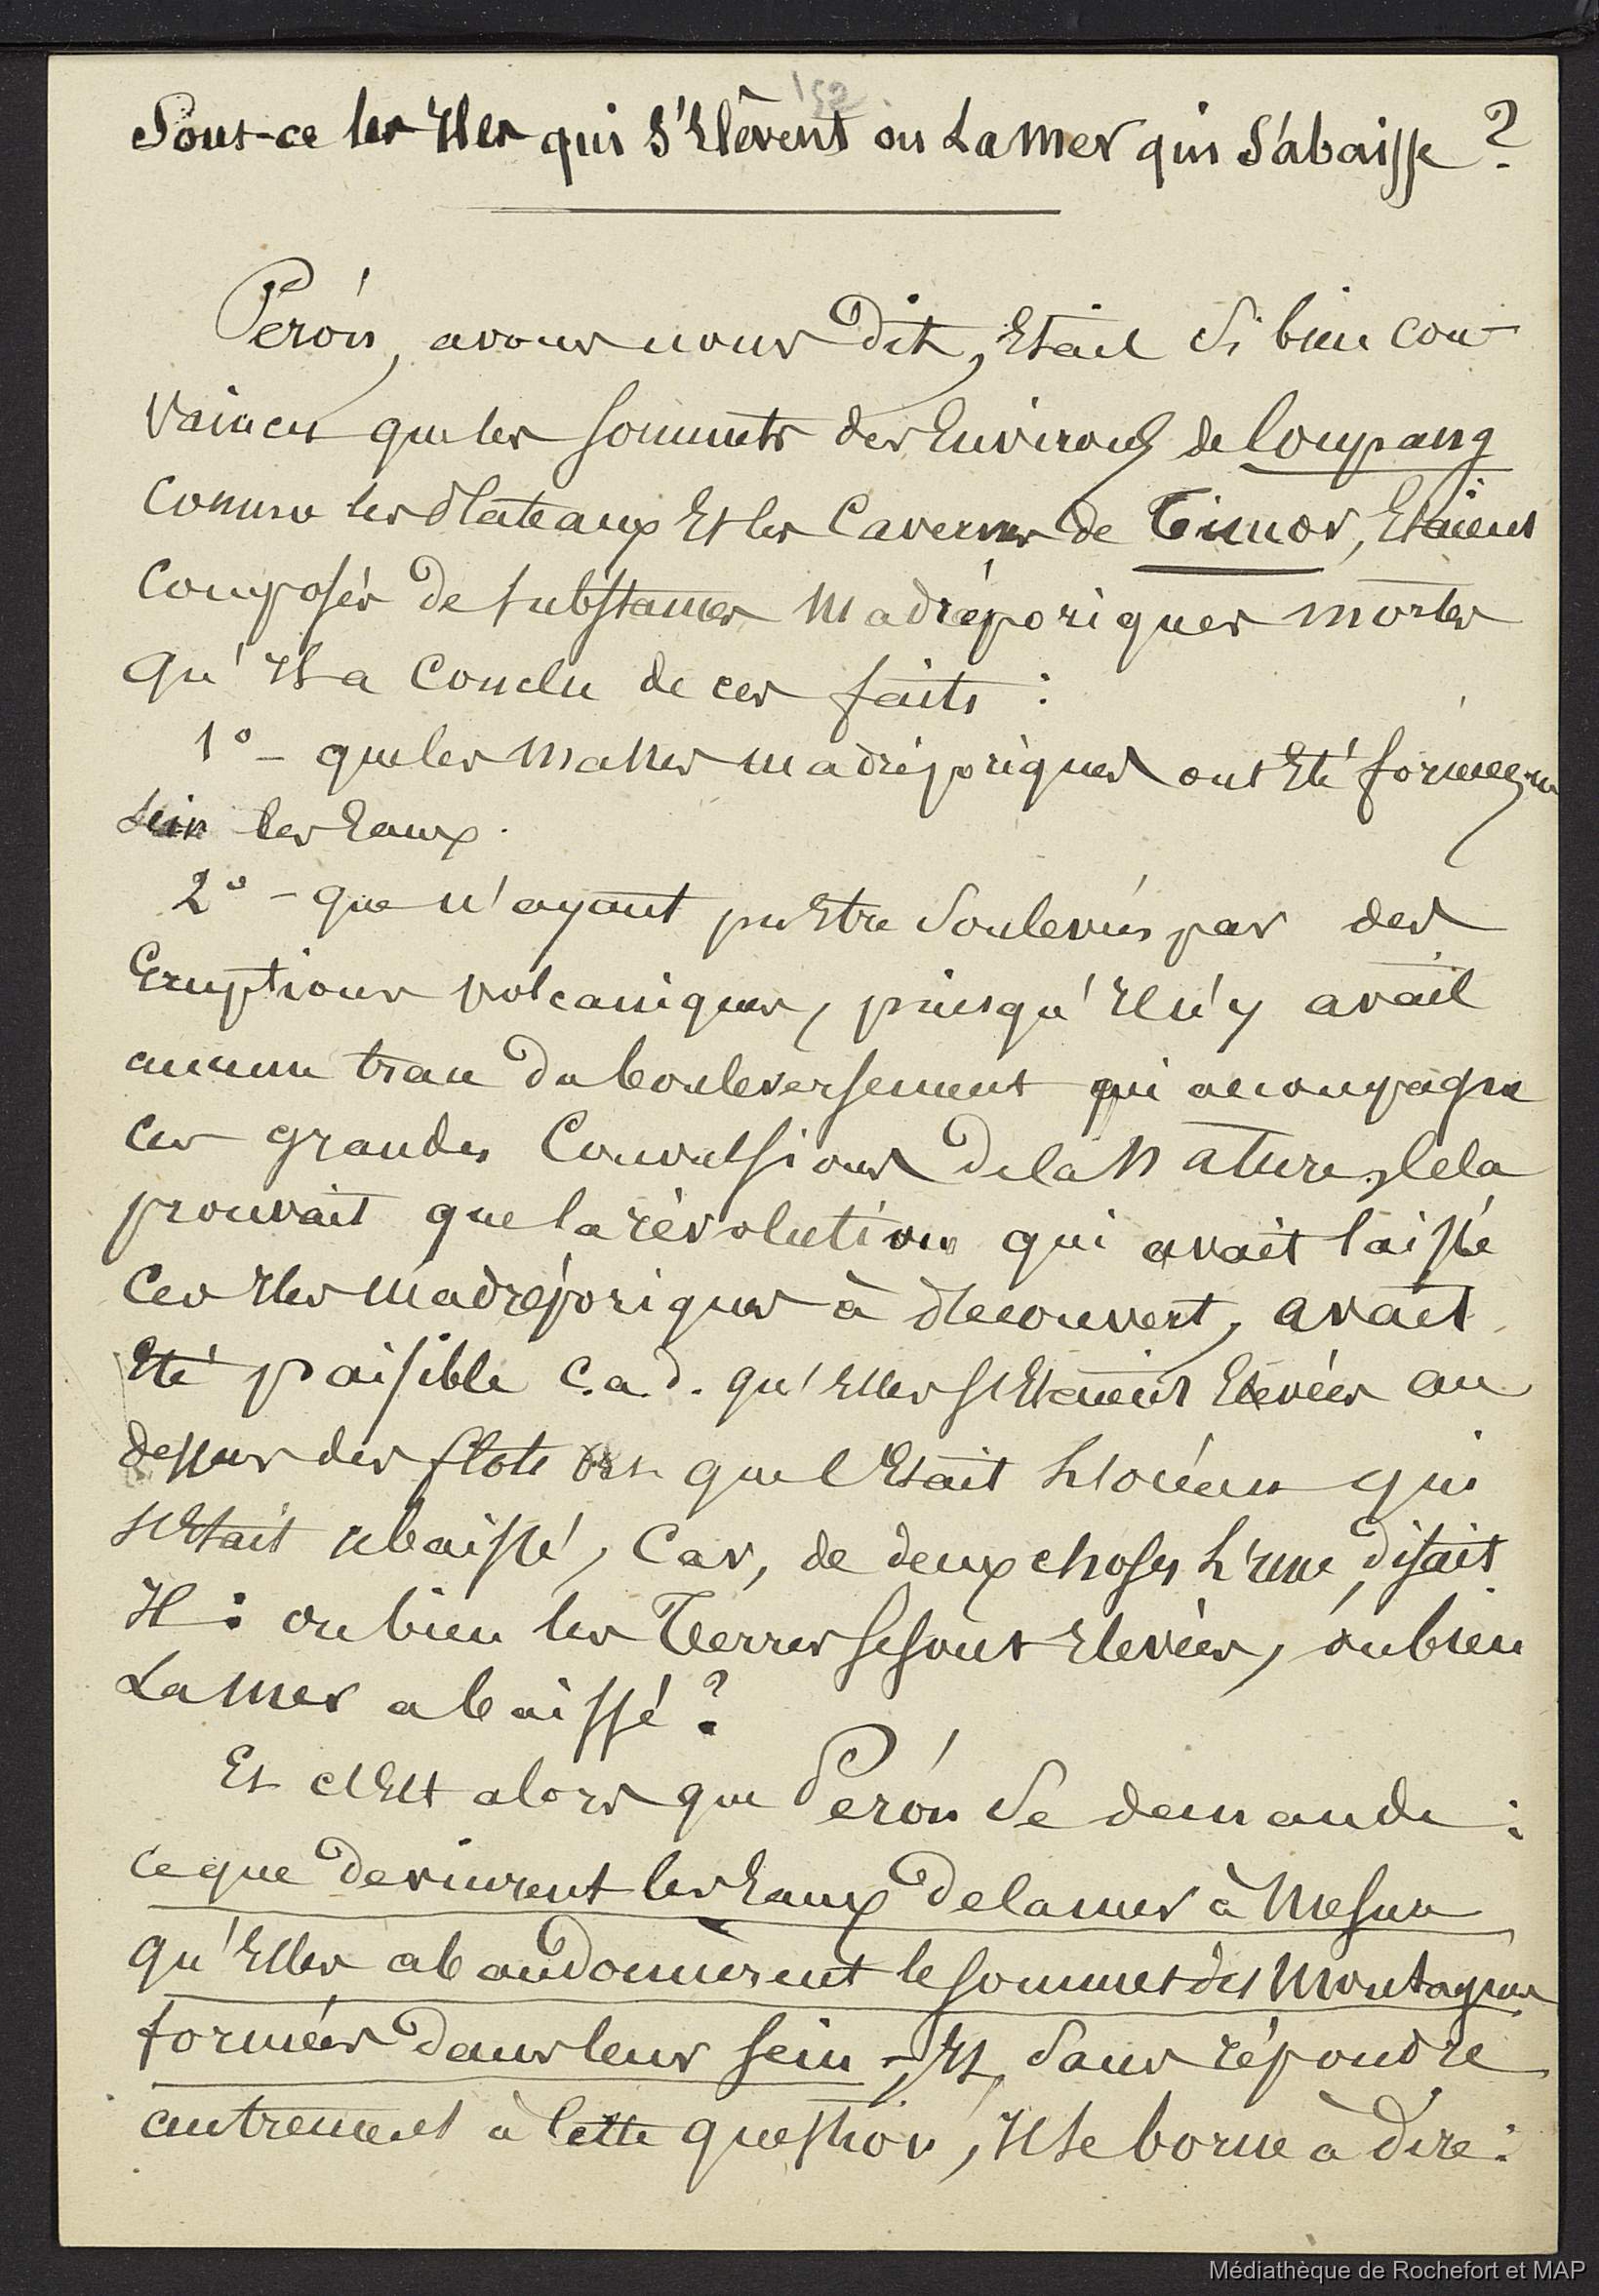 152
Sont-ce les Iles qui s'Elèvent ou La Mer qui s'abaisse ?
Perón, avons nous Dit, Etait si bien con-
vaincu que les sommets des Environs de Coupang
comme les Plateaux Et les Cavernes de Timor, Etaient
composés de substances Madréporiques mortes
qu'Il a conclu de ces faits :
1° - que les Masses madréporiques ont Eté formées au
sein les Eaux.
2° - que n'ayant pu Etre soulevés par des
Eruptions volcaniques, puisqu'Il n'y avait
aucune trace du bouleversement qui accompagne
ces grandes Convulsions de la Nature, Cela
prouvait que la révolution qui avait laissé
Ces Iles Madréporiques à découvert, avait
Eté paisible c.a.d. qu'Elles s'Etaient Elevées au
dessus des flots que c'Etait L'océan qui
s'Etait abaissé, Car, de deux choses L'une, disait
Il : ou bien les Terres se sont Elevées, ou bien
La Mer a baissé ?
Et c'Est alors que Perón se demande :
ce que devinrent les Eaux de la mer à Mesure
qu'Elles abandonnèrent le sommet des Montagnes
formées dans leur sein - Et, sans répondre
autrement à Cette question, Il se borne à dire :
Médiathèque de Rochefort et MAP